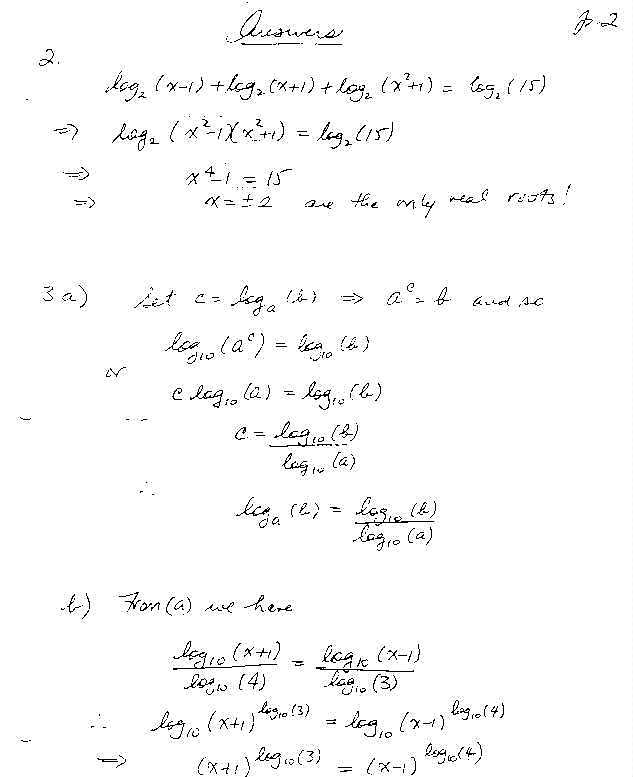 Answers
p. 2
2.
log₂ (x-1) + log₂ (x+1) + log₂ (x²+1) = log₂ (15)
⇒ log₂ (x²-1)(x²+1) = log₂ (15)
⇒ x⁴-1 = 15
⇒ x = ± 2 are the only real roots!
3 a) Set c = logₐ (b) ⇒ aᶜ = b and so
log₁₀ (aᶜ) = log₁₀ (b)
or
c log₁₀ (a) = log₁₀ (b)
c = log₁₀ (b) / log₁₀ (a)
∴
logₐ (b) = log₁₀ (b) / log₁₀ (a)
b) From (a) we have
log₁₀ (x+1) / log₁₀ (4) = log₁₀ (x-1) / log₁₀ (3)
∴ log₁₀ (x+1)^log₁₀(3) = log₁₀ (x-1)^log₁₀(4)
⇒ (x+1)^log₁₀(3) = (x-1)^log₁₀(4)